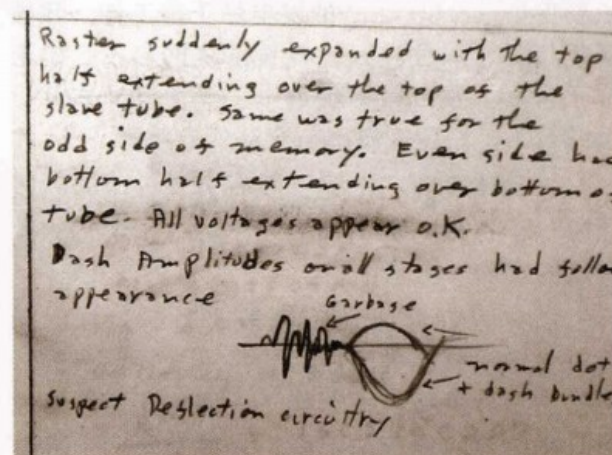 Raster suddenly expanded with the top
half extending over the top of the
slave tube. Same was true for the
odd side of memory. Even side had
bottom half extending over bottom of
tube. All voltages appear O.K.
Dash Amplitudes on all stages had follow
appearance
Garbage
normal dot
+ dash bundle
Suspect Deflection circuitry